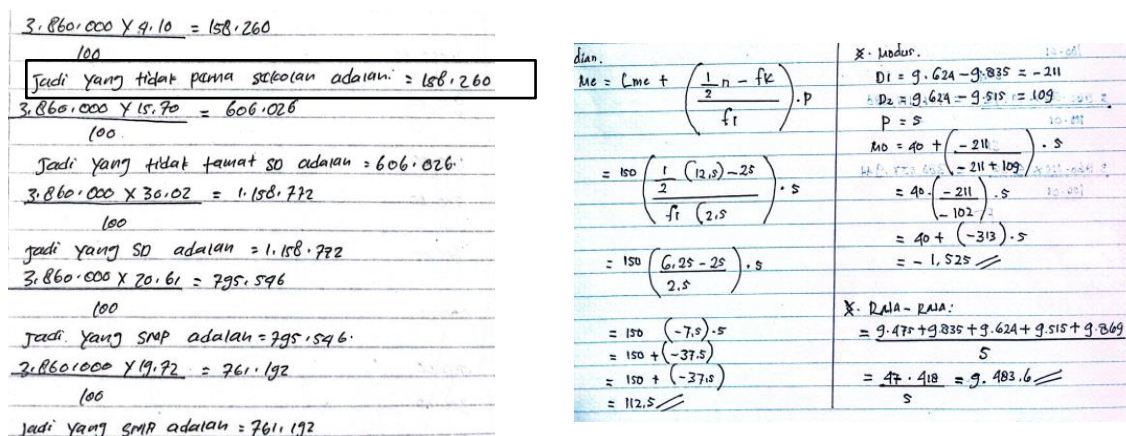 3.860.000 X 4.10 = 158.260
100
Jadi yang tidak perna sekolah adalah = 158.260
3.860.000 X 15.70 = 606.026
100
Jadi yang tidak tamat SD adalah = 606.026.
3.860.000 X 30.02 = 1.158.772
100
Jadi yang SD adalah = 1.158.772
3.860.000 X 20.61 = 795.546
100
Jadi yang SMP adalah = 795.546.
3.860.000 X 19.72 = 761.192
100
Jadi yang SMA adalah = 761.192
dian.
Me = Lme + ( 1/2 n - fk / fi ) . P
= 150 ( 1/2 (12,5) - 25 / fi (2,5 ) . 5
= 150 ( 6,25 - 25 / 2.5 ) . 5
= 150 (-7,5) . 5
= 150 + (-37.5)
= 150 + (-37,5)
= 112,5
X. Modus.
D1 = 9.624 - 9.835 = -211
D2 = 9.624 - 9.515 = 109
P = 5
Mo = 40 + ( -211 / -211 + 109 ) . 5
= 40 . ( -211 / -102 ) . 5
= 40 + (-313) . 5
= -1,525
X. RATA - RATA :
= 9.475 + 9.835 + 9.624 + 9.515 + 9.869
5
= 47.418 = 9.483,6
5